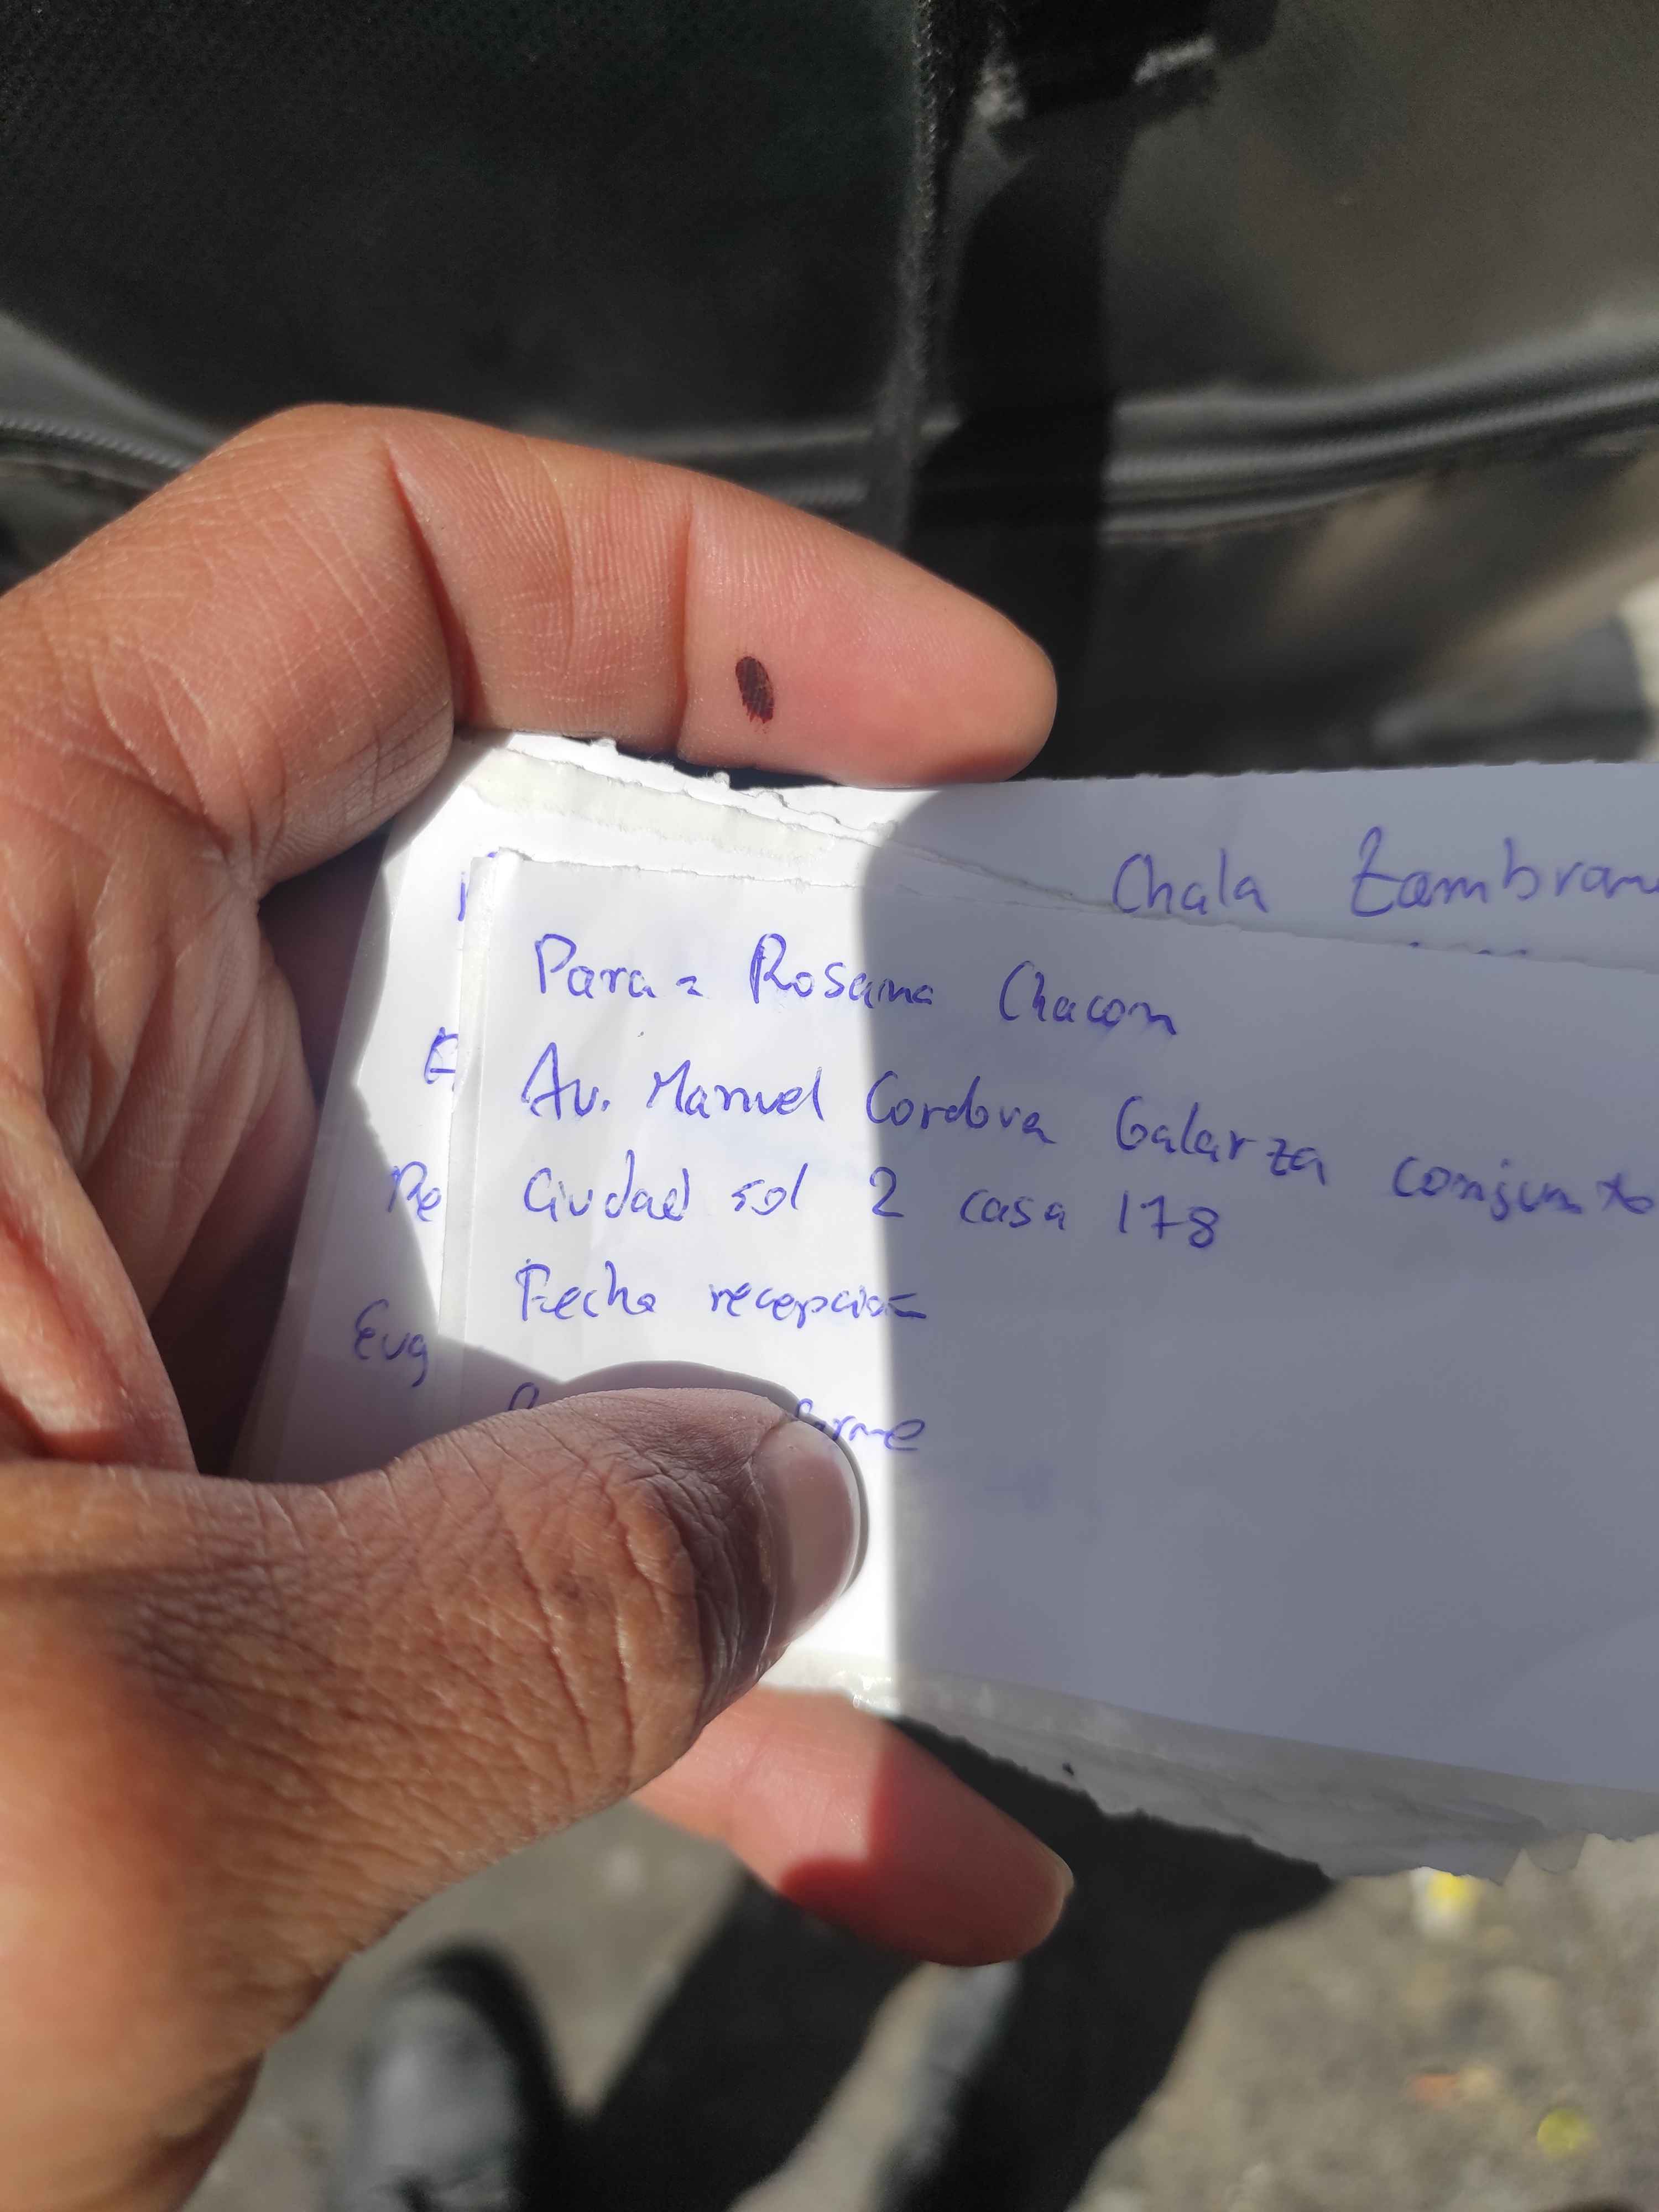 Chala Zambran
Para = Rosana Chacon
Av. Manuel Cordova Galarza conjunto
Ciudad sol 2 casa 178
Fecha recepción
Re
Eug